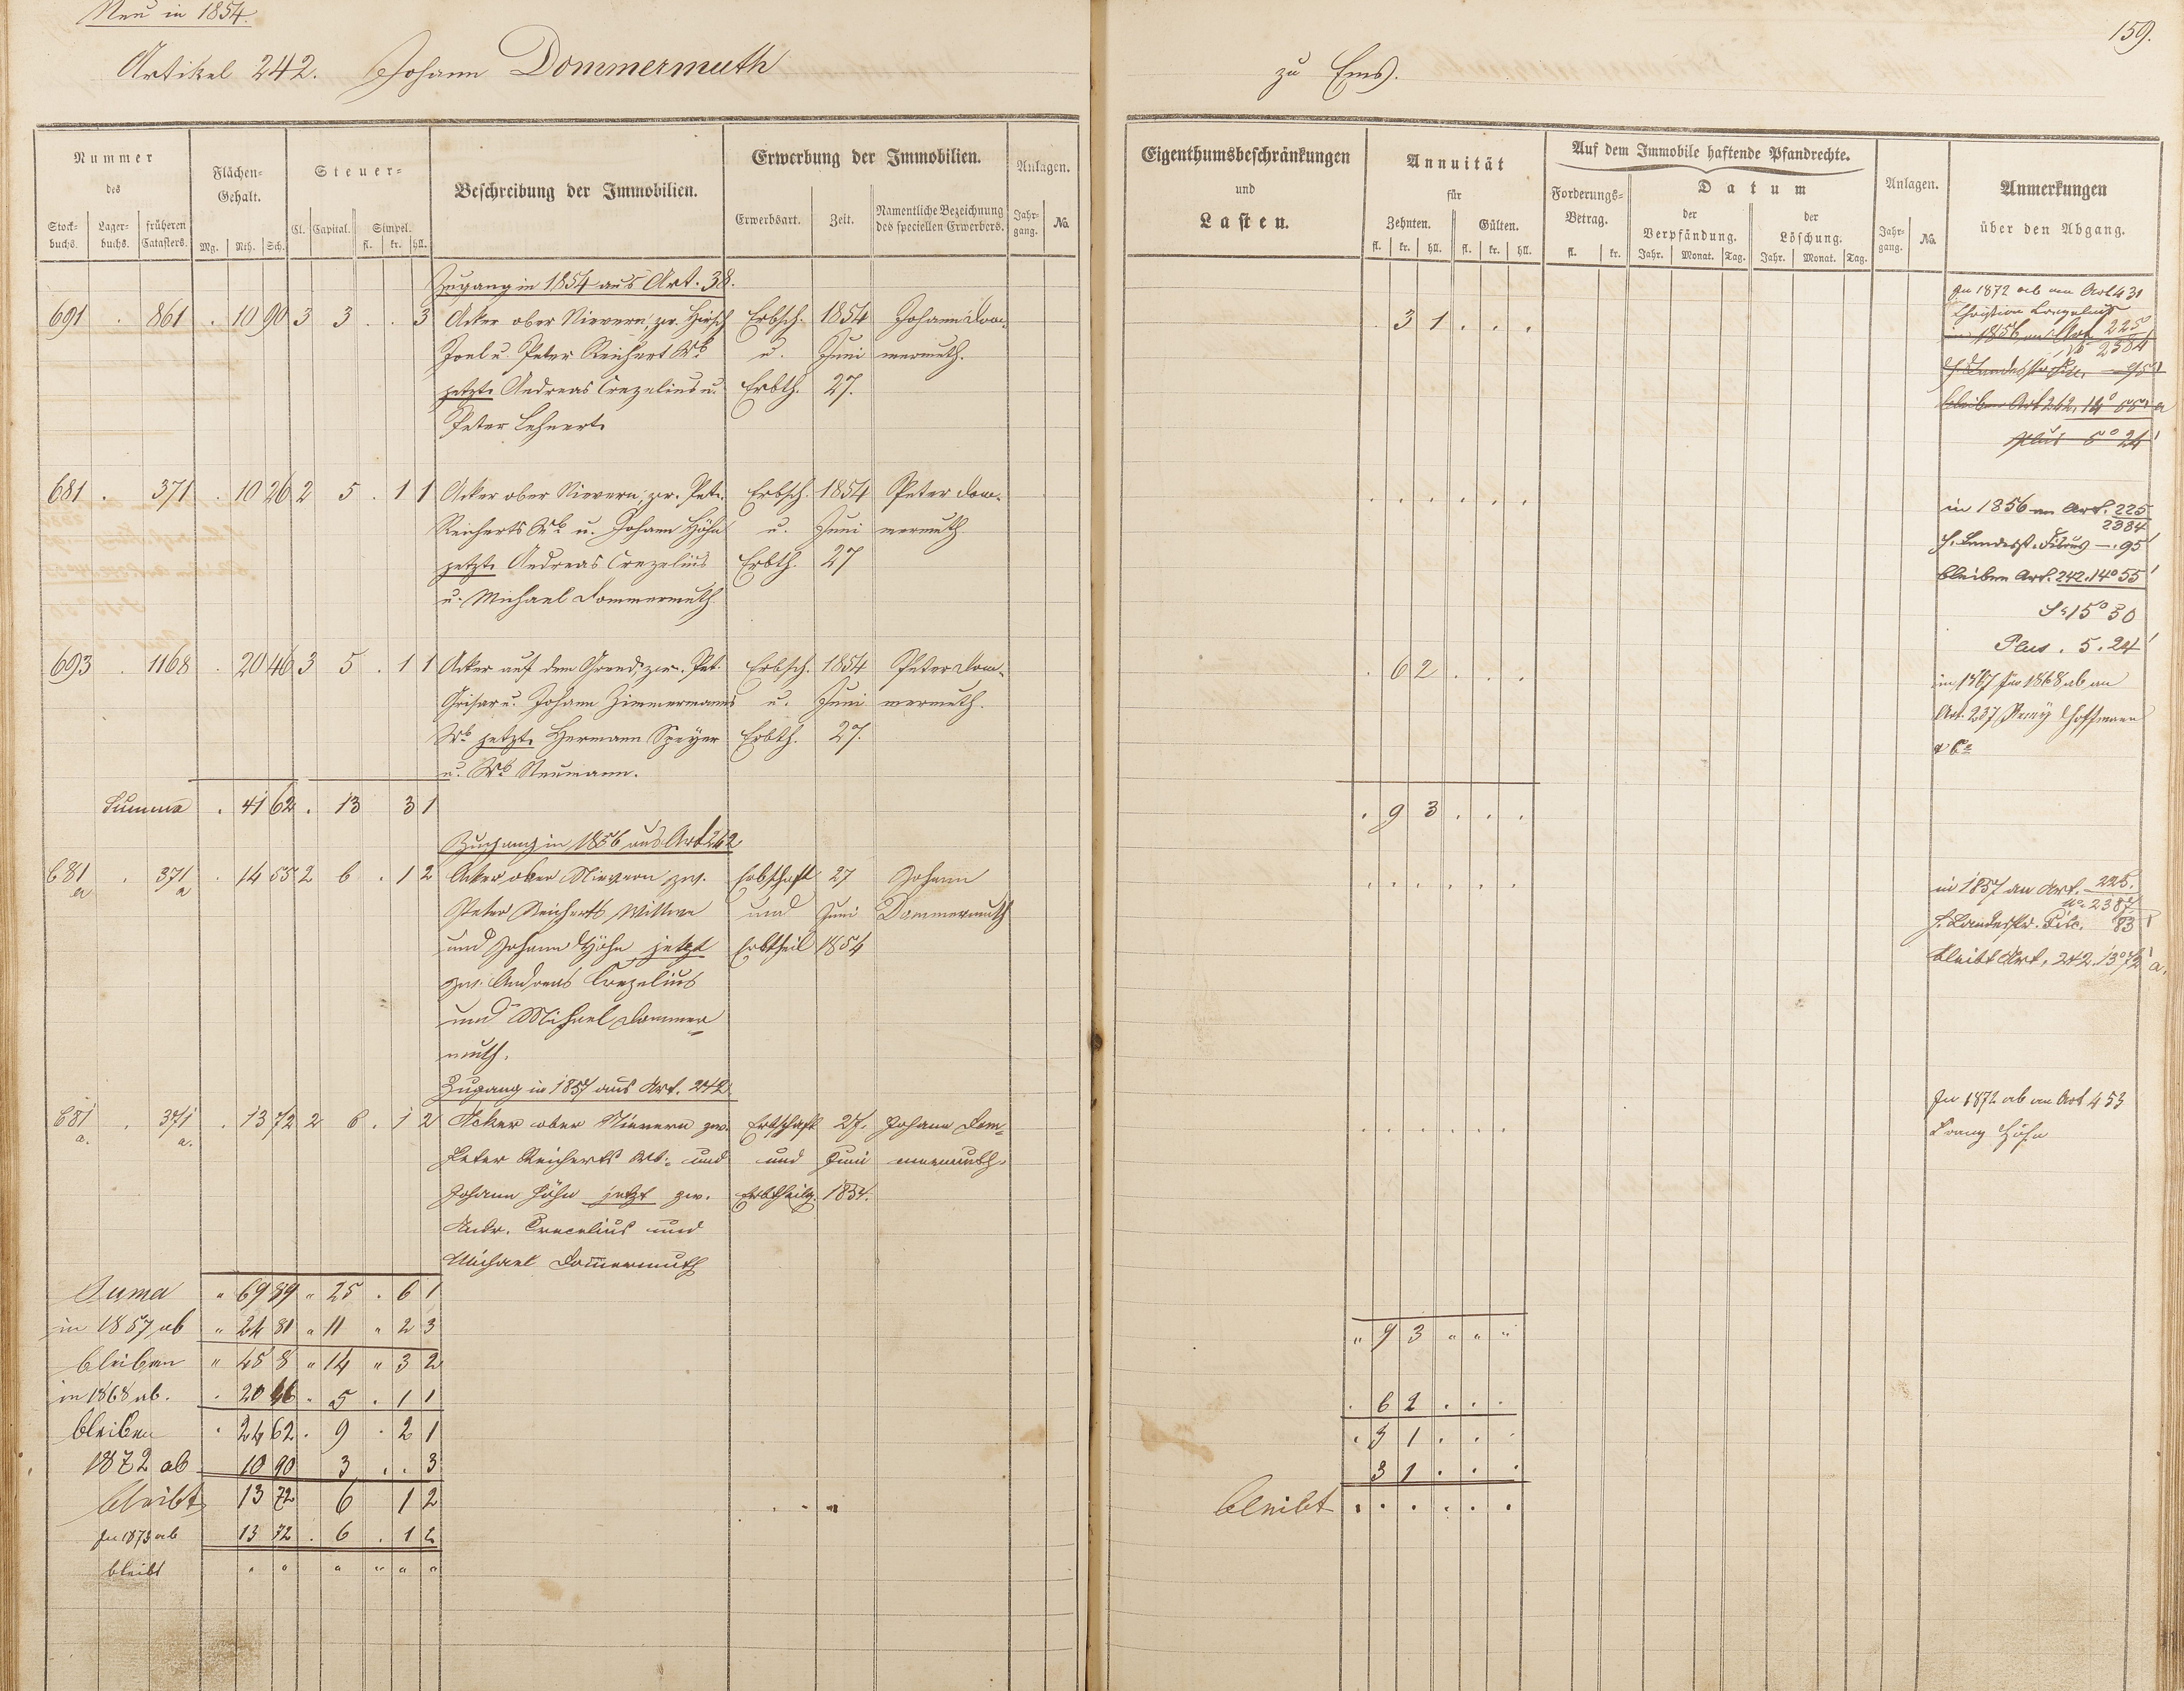 Neu in 1854.
Artikel 242. Johann Dommermuth
zu Ems.
159.
Nummer
des
Stock-
buchs.
Lager-
buchs.
früheren
Catasters.
Flächen-
Gehalt.
Mg. Rth. Sch.
Steuer-
Cl. Capital. Simpel.
fl. kr. hll.
Beschreibung der Immobilien.
Erwerbung der Immobilien.
Erwerbsart. Zeit. Namentliche Bezeichnung
des speciellen Erwerbers.
Anlagen.
Jahr-
gang. No.
Eigenthumsbeschränkungen
und
Lasten.
Annuität
für
Zehnten. Gülten.
fl. kr. hll. fl. kr. hll.
Auf dem Immobile haftende Pfandrechte.
Forderungs-
Betrag.
fl. kr.
Datum
der
Verpfändung.
Jahr. Monat. Tag.
der
Löschung.
Jahr. Monat. Tag.
Anlagen.
Jahr-
gang. No.
Anmerkungen
über den Abgang.
Zugang in 1854 aus Art. 38.
691 . 861 . 10 90 3 3 . . 3 Acker ober Nievern, zw. Hirsch Erbsch. 1854 Johann Dom-
Joel u. Peter Reichert Wb. u. Juni mermuth.
jetzt. Andreas Crezelius u. Erbth. 27.
Peter Lehnert.
. 3 1 . . .
In 1872 ab an Art 431
Christian
in 1856 an Art 225
No 2384
95
bleiben Art 242. 14° 55' a
plus 5° 24'
681 . 371 . 10 26 2 5 . 1 1 Acker ober Nievern, zw. Pet. Erbsch. 1854 Peter Dom-
Reicherts Wb. u. Johann Höhn u. Juni mermuth.
jetzt. Andreas Crezelius Erbth. 27
u. Michael Dommermuth
. . . . . .
in 1856 an Art. 225
2384
H. Landesst. Fiscus — . 95'
bleiben Art. 242. 14° 55'
S. 15° 50
Plus . 5. 24'
693 . 1168 . 20 46 3 5 . 1 1 Acker auf dem Grend, zw. Pet. Erbsch. 1854 Peter Dom-
Grisar u. Johann Zimmermanns u. Juni mermuth.
Wb. jetzt. Hermann Speyer Erbth. 27.
u. Wb. Neumann.
. 6 2 . . .
in 1867 pro 1868 ab an
Art. 237 Remy Hoffmann
& Co
Summa . 41 62 . 13 3 1
. 9 3 . . .
Zugang in 1856 aus Art 242
681 a . 371 a . 14 55 2 6 . 1 2 Acker ober Nievern zw. Erbschaft 27 Johann
Peter Reicherts Wittwe und Juni Dommermuth
und Johann Höhn jetzt Erbtheil 1854
zw. Andreas Crezelius
und Michael Dommer
muth.
. . . . . .
in 1857 an Art. 225.
No. 2387
H. Landesstr. Fisc. 83'
bleibt Art. 242. 13° 72' a.
Zugang in 1857 aus Art. 242.
681 a. . 371 a. . 13 72 2 6 . 1 2 Acker ober Nievern zw. Erbschaft 27. Johann Dom-
Peter Reicherts Wb. und und Juni mermuth.
Johann Höhn jetzt zw. Erbtheilg. 1854.
Andr. Crecelius und
Michael Dom̅ermuth
. . . . . .
In 1872 ab an Art 453
Franz Höhn
Suma " 69 89 " 25 . 6 1
in 1857 ab " 24 81 " 11 " 2 3
" 9 3 " " "
bleiben " 45 8 " 14 " 3 2
in 1868 ab. . 20 46 . 5 . 1 1
. 6 2 . . .
bleiben . 24 62 . 9 . 2 1
. 3 1 . . .
1872 ab 10 90 3 . . 3
3 1 . . .
bleibt 13 72 6 1 2
bleibt . . . . . .
In 1873 ab 13 72 . 6 . 1 2
bleibt " " " " " "